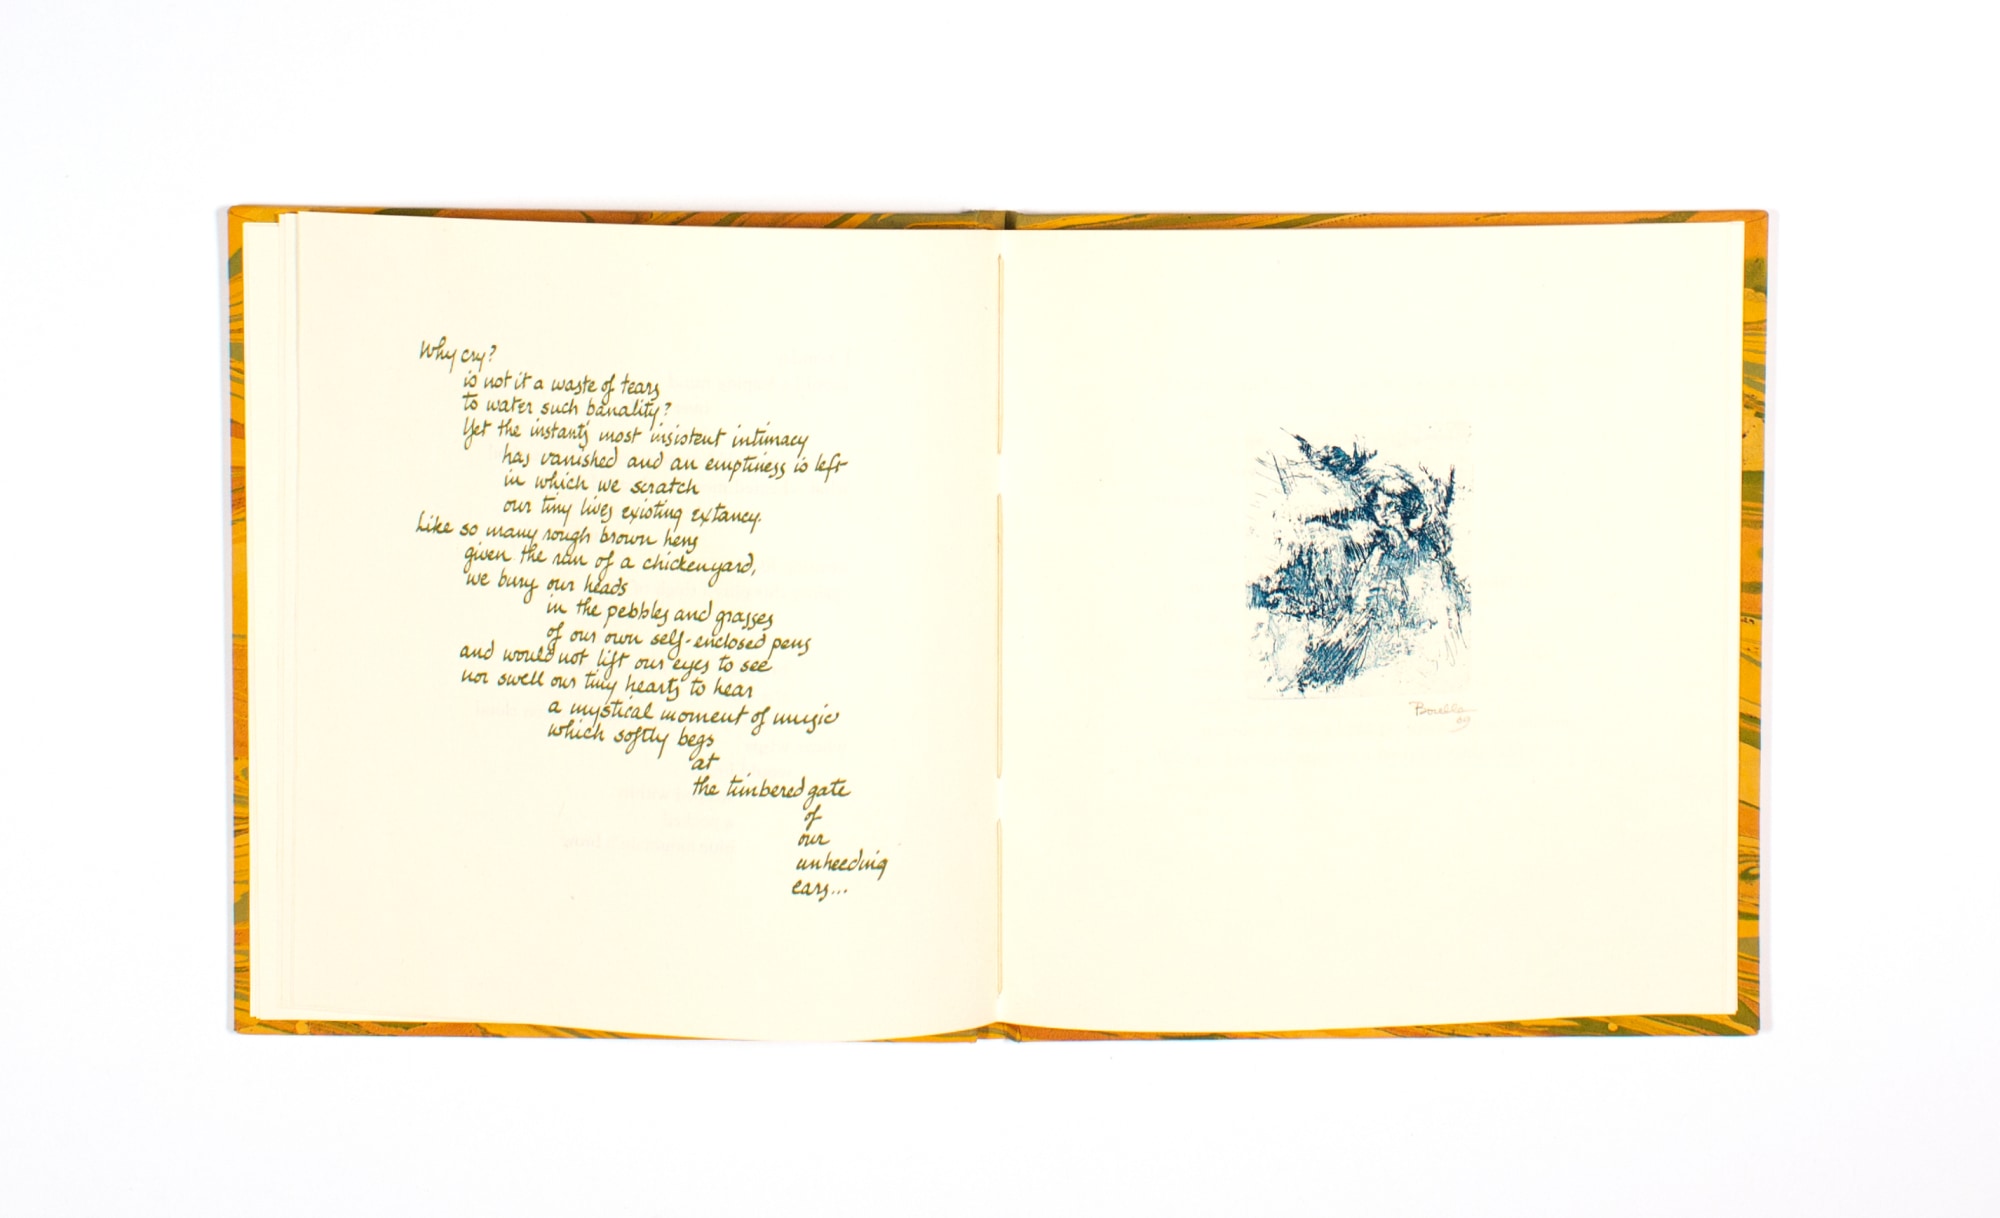 Why cry?
is not it a waste of tears
to water such banality?
Yet the instants most insistent intimacy
has vanished and an emptiness is left
in which we scratch
our tiny lives existing extancy.
Like so many rough brown hens
given the run of a chickenyard,
we bury our heads
in the pebbles and grasses
of our own self-enclosed pens
and would not lift our eyes to see
nor swell our tiny hearts to hear
a mystical moment of music
which softly begs
at
the timbered gate
of
our
unheeding
ears...